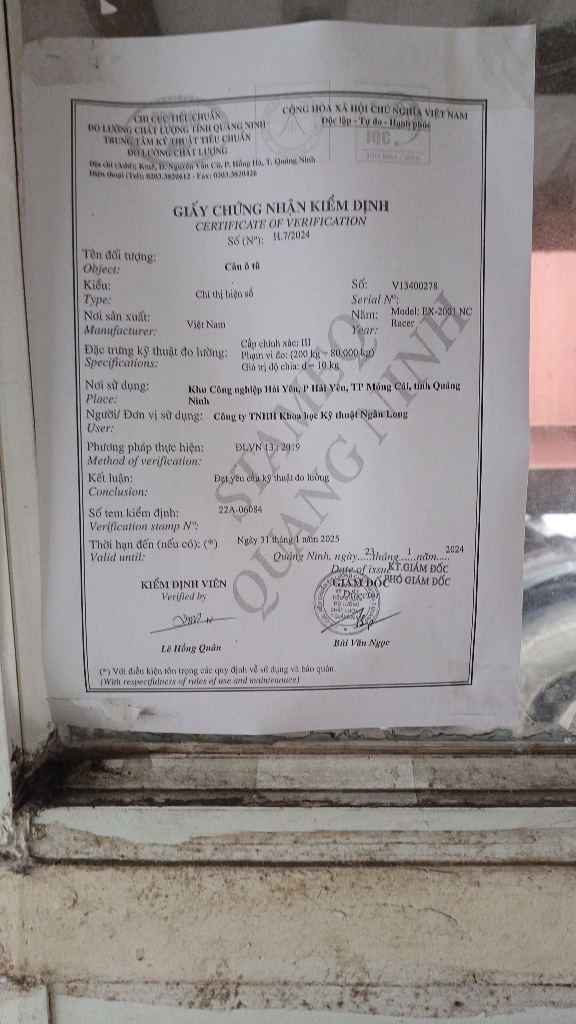 CHI CỤC TIÊU CHUẨN
ĐO LƯỜNG CHẤT LƯỢNG TỈNH QUẢNG NINH
TRUNG TÂM KỸ THUẬT TIÊU CHUẨN
ĐO LƯỜNG CHẤT LƯỢNG
Địa chỉ (Add): Km8, Đ. Nguyễn Văn Cừ, P. Hồng Hà, T. Quảng Ninh
Điện thoại (Tel): 0203.3820612 - Fax: 0203.3820426
CỘNG HÒA XÃ HỘI CHỦ NGHĨA VIỆT NAM
Độc lập - Tự do - Hạnh phúc
IQC
GIẤY CHỨNG NHẬN KIỂM ĐỊNH
CERTIFICATE OF VERIFICATION
Số (Nº): H.7/2024
Tên đối tượng: Cân ô tô
Object:
Kiểu: Chỉ thị hiện số Số: V13400278
Type: Serial Nº:
Nơi sản xuất: Việt Nam Năm: Model: EX-2001 NC
Manufacturer: Year: Racer
Đặc trưng kỹ thuật đo lường: Cấp chính xác: III
Specifications: Phạm vi đo: (200 kg ÷ 80.000 kg)
Giá trị độ chia: d = 10 kg
Nơi sử dụng: Khu Công nghiệp Hải Yên, P Hải Yên, TP Móng Cái, tỉnh Quảng
Place: Ninh
Người/ Đơn vị sử dụng: Công ty TNHH Khoa học Kỹ thuật Ngân Long
User:
Phương pháp thực hiện: ĐLVN 13 : 2019
Method of verification:
Kết luận: Đạt yêu cầu kỹ thuật đo lường
Conclusion:
Số tem kiểm định: 22A-06084
Verification stamp Nº:
Thời hạn đến (nếu có): (*) Ngày 31 tháng 1 năm 2025
Valid until:
Quảng Ninh, ngày....23tháng...1...năm...2024
Date of issue
KT.GIÁM ĐỐC
KIỂM ĐỊNH VIÊN GIÁM ĐỐC PHÓ GIÁM ĐỐC
Verified by Director
Lê Hồng Quân Bùi Văn Ngọc
(*) Với điều kiện tôn trọng các quy định về sử dụng và bảo quản.
(With respectfulness of rules of use and maintenance)
STAMEQ
QUANG NINH